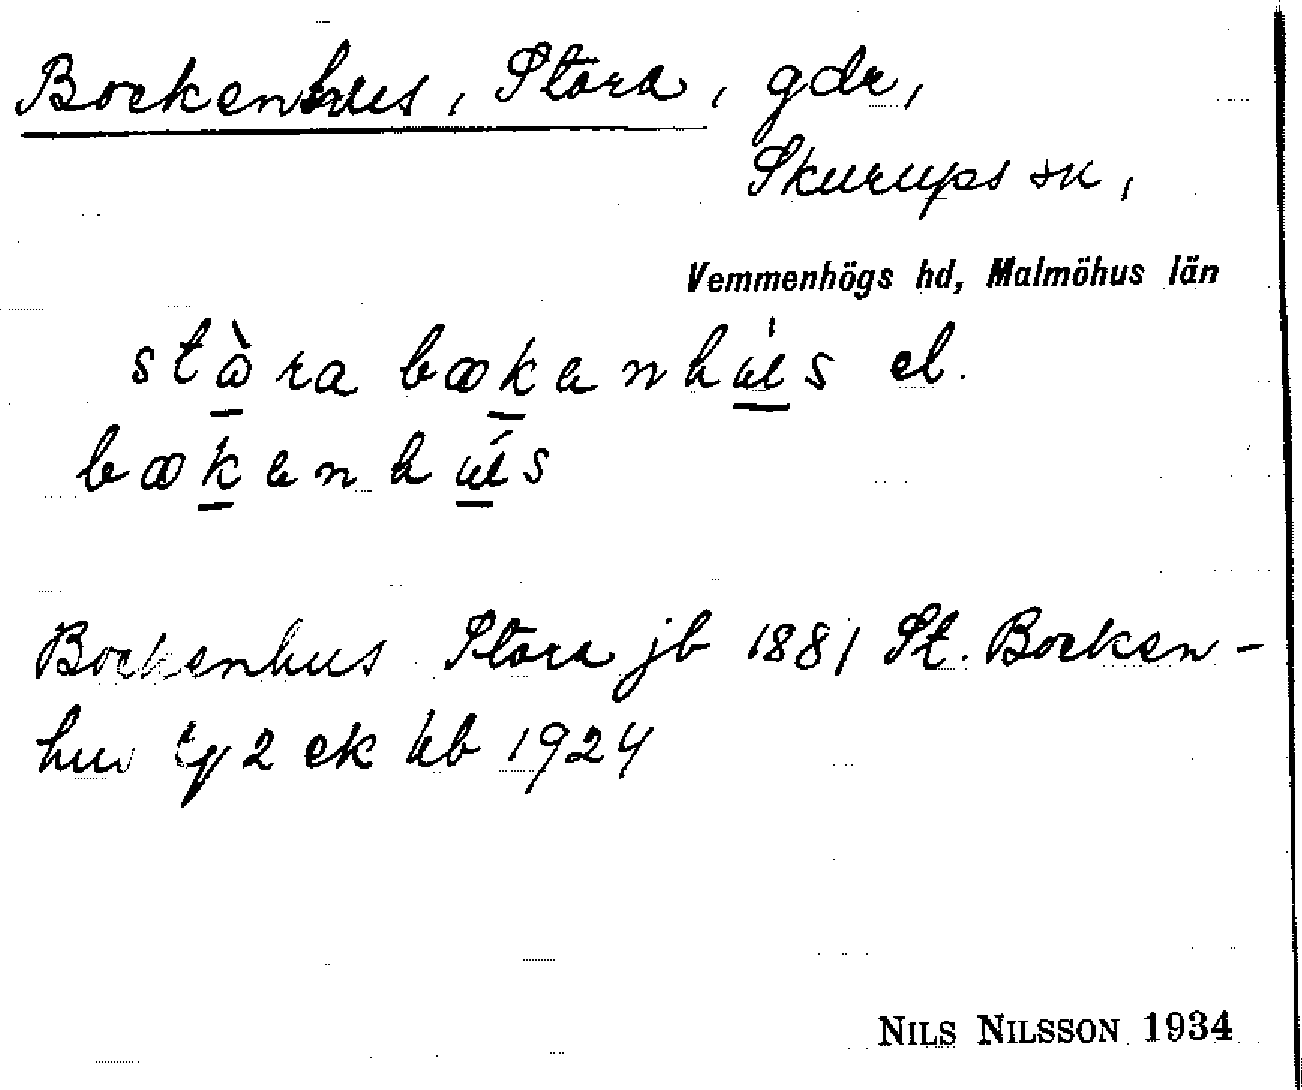 Bockenhus, Stora, gdr,
Skurups sn,
Vemmenhögs hd, Malmöhus län
stò̱ra bꝏḵanhú̱s el.
bꝏḵanhú̱s
Bockenhus Stora jb 1881 St. Bocken-
hus 2 ek kb 1924
NILS NILSSON 1934